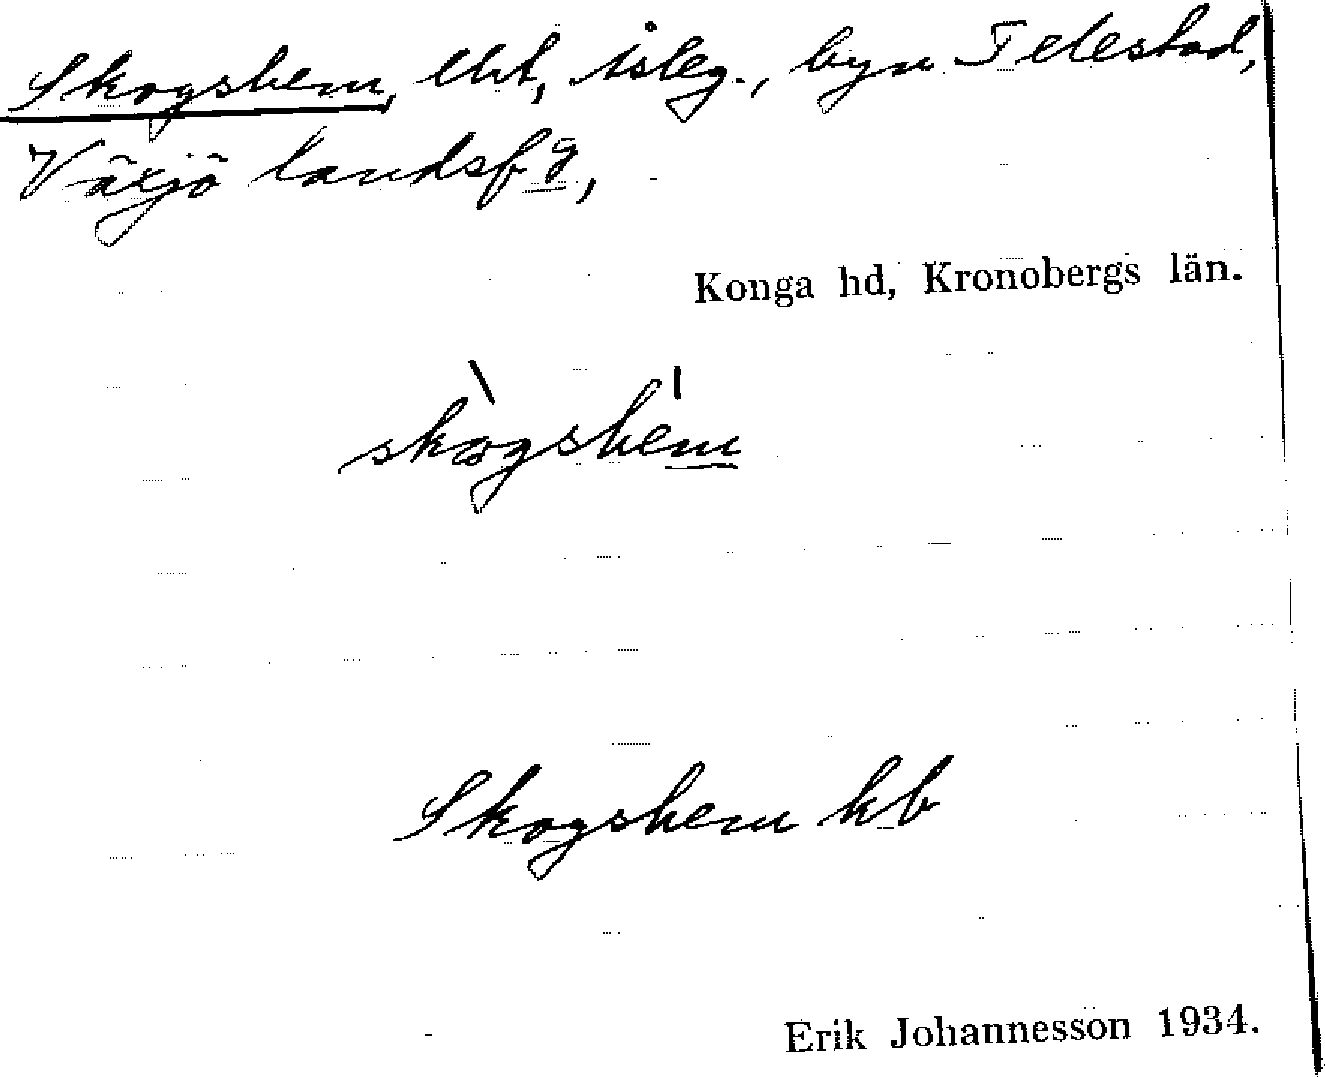 Skogshem, lht, byn Telestad,
Växjö landsfg,
Konga hd, Kronobergs län.
skògshém
Skogshem kb
Erik Johannesson 1934.